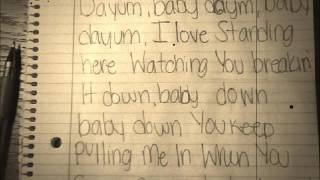 Dayum, baby daym, baby
dayum, I love Standing
here Watching You breakin
It down, baby down
baby down You keep
pulling Me In When You